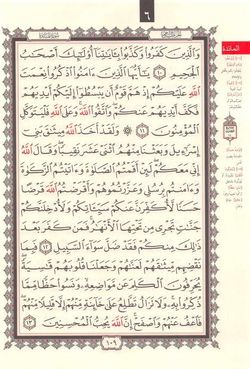 ٦
وَالَّذِينَ كَفَرُوا وَكَذَّبُوا بِآيَاتِنَا أُولَٰئِكَ أَصْحَابُ
الْجَحِيمِ ١٠ يَا أَيُّهَا الَّذِينَ آمَنُوا اذْكُرُوا نِعْمَتَ
اللَّهِ عَلَيْكُمْ إِذْ هَمَّ قَوْمٌ أَن يَبْسُطُوا إِلَيْكُمْ أَيْدِيَهُمْ
فَكَفَّ أَيْدِيَهُمْ عَنكُمْ وَاتَّقُوا اللَّهَ وَعَلَى اللَّهِ فَلْيَتَوَكَّلِ
الْمُؤْمِنُونَ ١١ وَلَقَدْ أَخَذَ اللَّهُ مِيثَاقَ بَنِي
إِسْرَائِيلَ وَبَعَثْنَا مِنْهُمُ اثْنَيْ عَشَرَ نَقِيبًا وَقَالَ اللَّهُ
إِنِّي مَعَكُمْ لَئِنْ أَقَمْتُمُ الصَّلَاةَ وَآتَيْتُمُ الزَّكَاةَ
وَآمَنتُم بِرُسُلِي وَعَزَّرْتُمُوهُمْ وَأَقْرَضْتُمُ اللَّهَ قَرْضًا
حَسَنًا لَّأُكَفِّرَنَّ عَنكُمْ سَيِّئَاتِكُمْ وَلَأُدْخِلَنَّكُمْ
جَنَّاتٍ تَجْرِي مِن تَحْتِهَا الْأَنْهَارُ فَمَن كَفَرَ بَعْدَ
ذَٰلِكَ مِنكُمْ فَقَدْ ضَلَّ سَوَاءَ السَّبِيلِ ١٢ فَبِمَا
نَقْضِهِم مِّيثَاقَهُمْ لَعَنَّاهُمْ وَجَعَلْنَا قُلُوبَهُمْ قَاسِيَةً
يُحَرِّفُونَ الْكَلِمَ عَن مَّوَاضِعِهِ وَنَسُوا حَظًّا مِّمَّا
ذُكِّرُوا بِهِ وَلَا تَزَالُ تَطَّلِعُ عَلَىٰ خَائِنَةٍ مِّنْهُمْ إِلَّا قَلِيلًا مِّنْهُمْ
فَاعْفُ عَنْهُمْ وَاصْفَحْ إِنَّ اللَّهَ يُحِبُّ الْمُحْسِنِينَ ١٣
١٠٩
المائدة